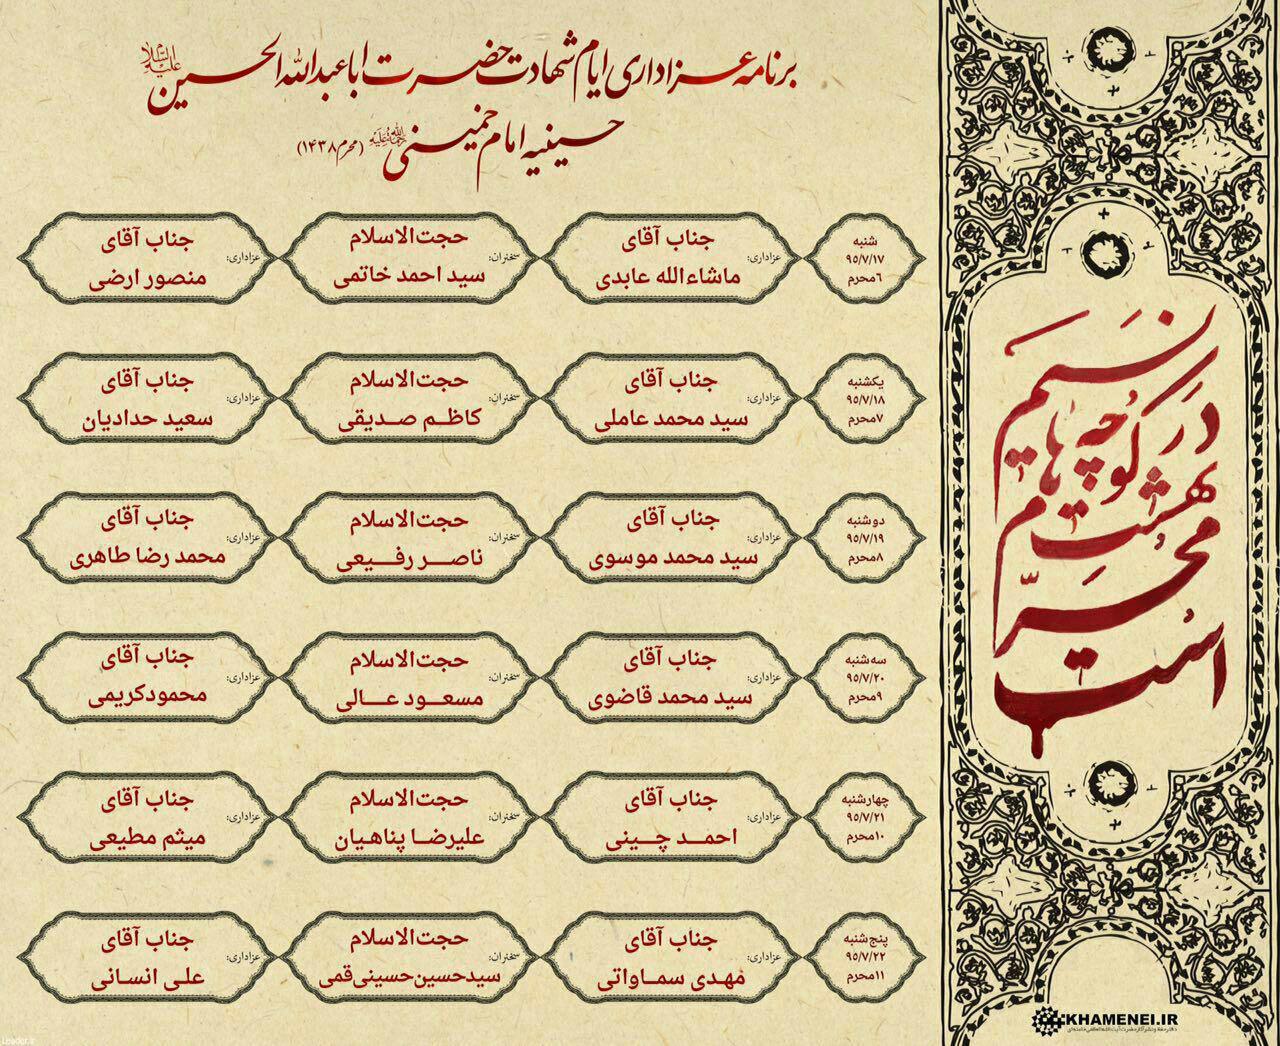 برنامه عزاداری ایام شهادت حضرت اباعبدالله الحسین علیه‌السلام
حسینیه امام خمینی رحمةالله‌علیه (محرم ۱۴۳۸)
شنبه
۹۵/۷/۱۷
۶محرم
عزاداری: جناب آقای
ماشاءالله عابدی
سخنران: حجت‌الاسلام
سید احمد خاتمی
عزاداری: جناب آقای
منصور ارضی
یکشنبه
۹۵/۷/۱۸
۷محرم
عزاداری: جناب آقای
سید محمد عاملی
سخنران: حجت‌الاسلام
کاظم صدیقی
عزاداری: جناب آقای
سعید حدادیان
دوشنبه
۹۵/۷/۱۹
۸محرم
عزاداری: جناب آقای
سید محمد موسوی
سخنران: حجت‌الاسلام
ناصر رفیعی
عزاداری: جناب آقای
محمد رضا طاهری
سه شنبه
۹۵/۷/۲۰
۹محرم
عزاداری: جناب آقای
سید محمد قاضوی
سخنران: حجت‌الاسلام
مسعود عالی
عزاداری: جناب آقای
محمودکریمی
چهارشنبه
۹۵/۷/۲۱
۱۰محرم
عزاداری: جناب آقای
احمد چینی
سخنران: حجت‌الاسلام
علیرضا پناهیان
عزاداری: جناب آقای
میثم مطیعی
پنج شنبه
۹۵/۷/۲۲
۱۱محرم
عزاداری: جناب آقای
مهدی سماواتی
سخنران: حجت‌الاسلام
سیدحسین‌حسینی‌قمی
عزاداری: جناب آقای
علی انسانی
نسیم
در کوچه‌های
بهشت
محرم
است
KHAMENEI.IR
دفتر حفظ و نشر آثار حضرت آیت‌الله‌العظمی خامنه‌ای
Leader.ir